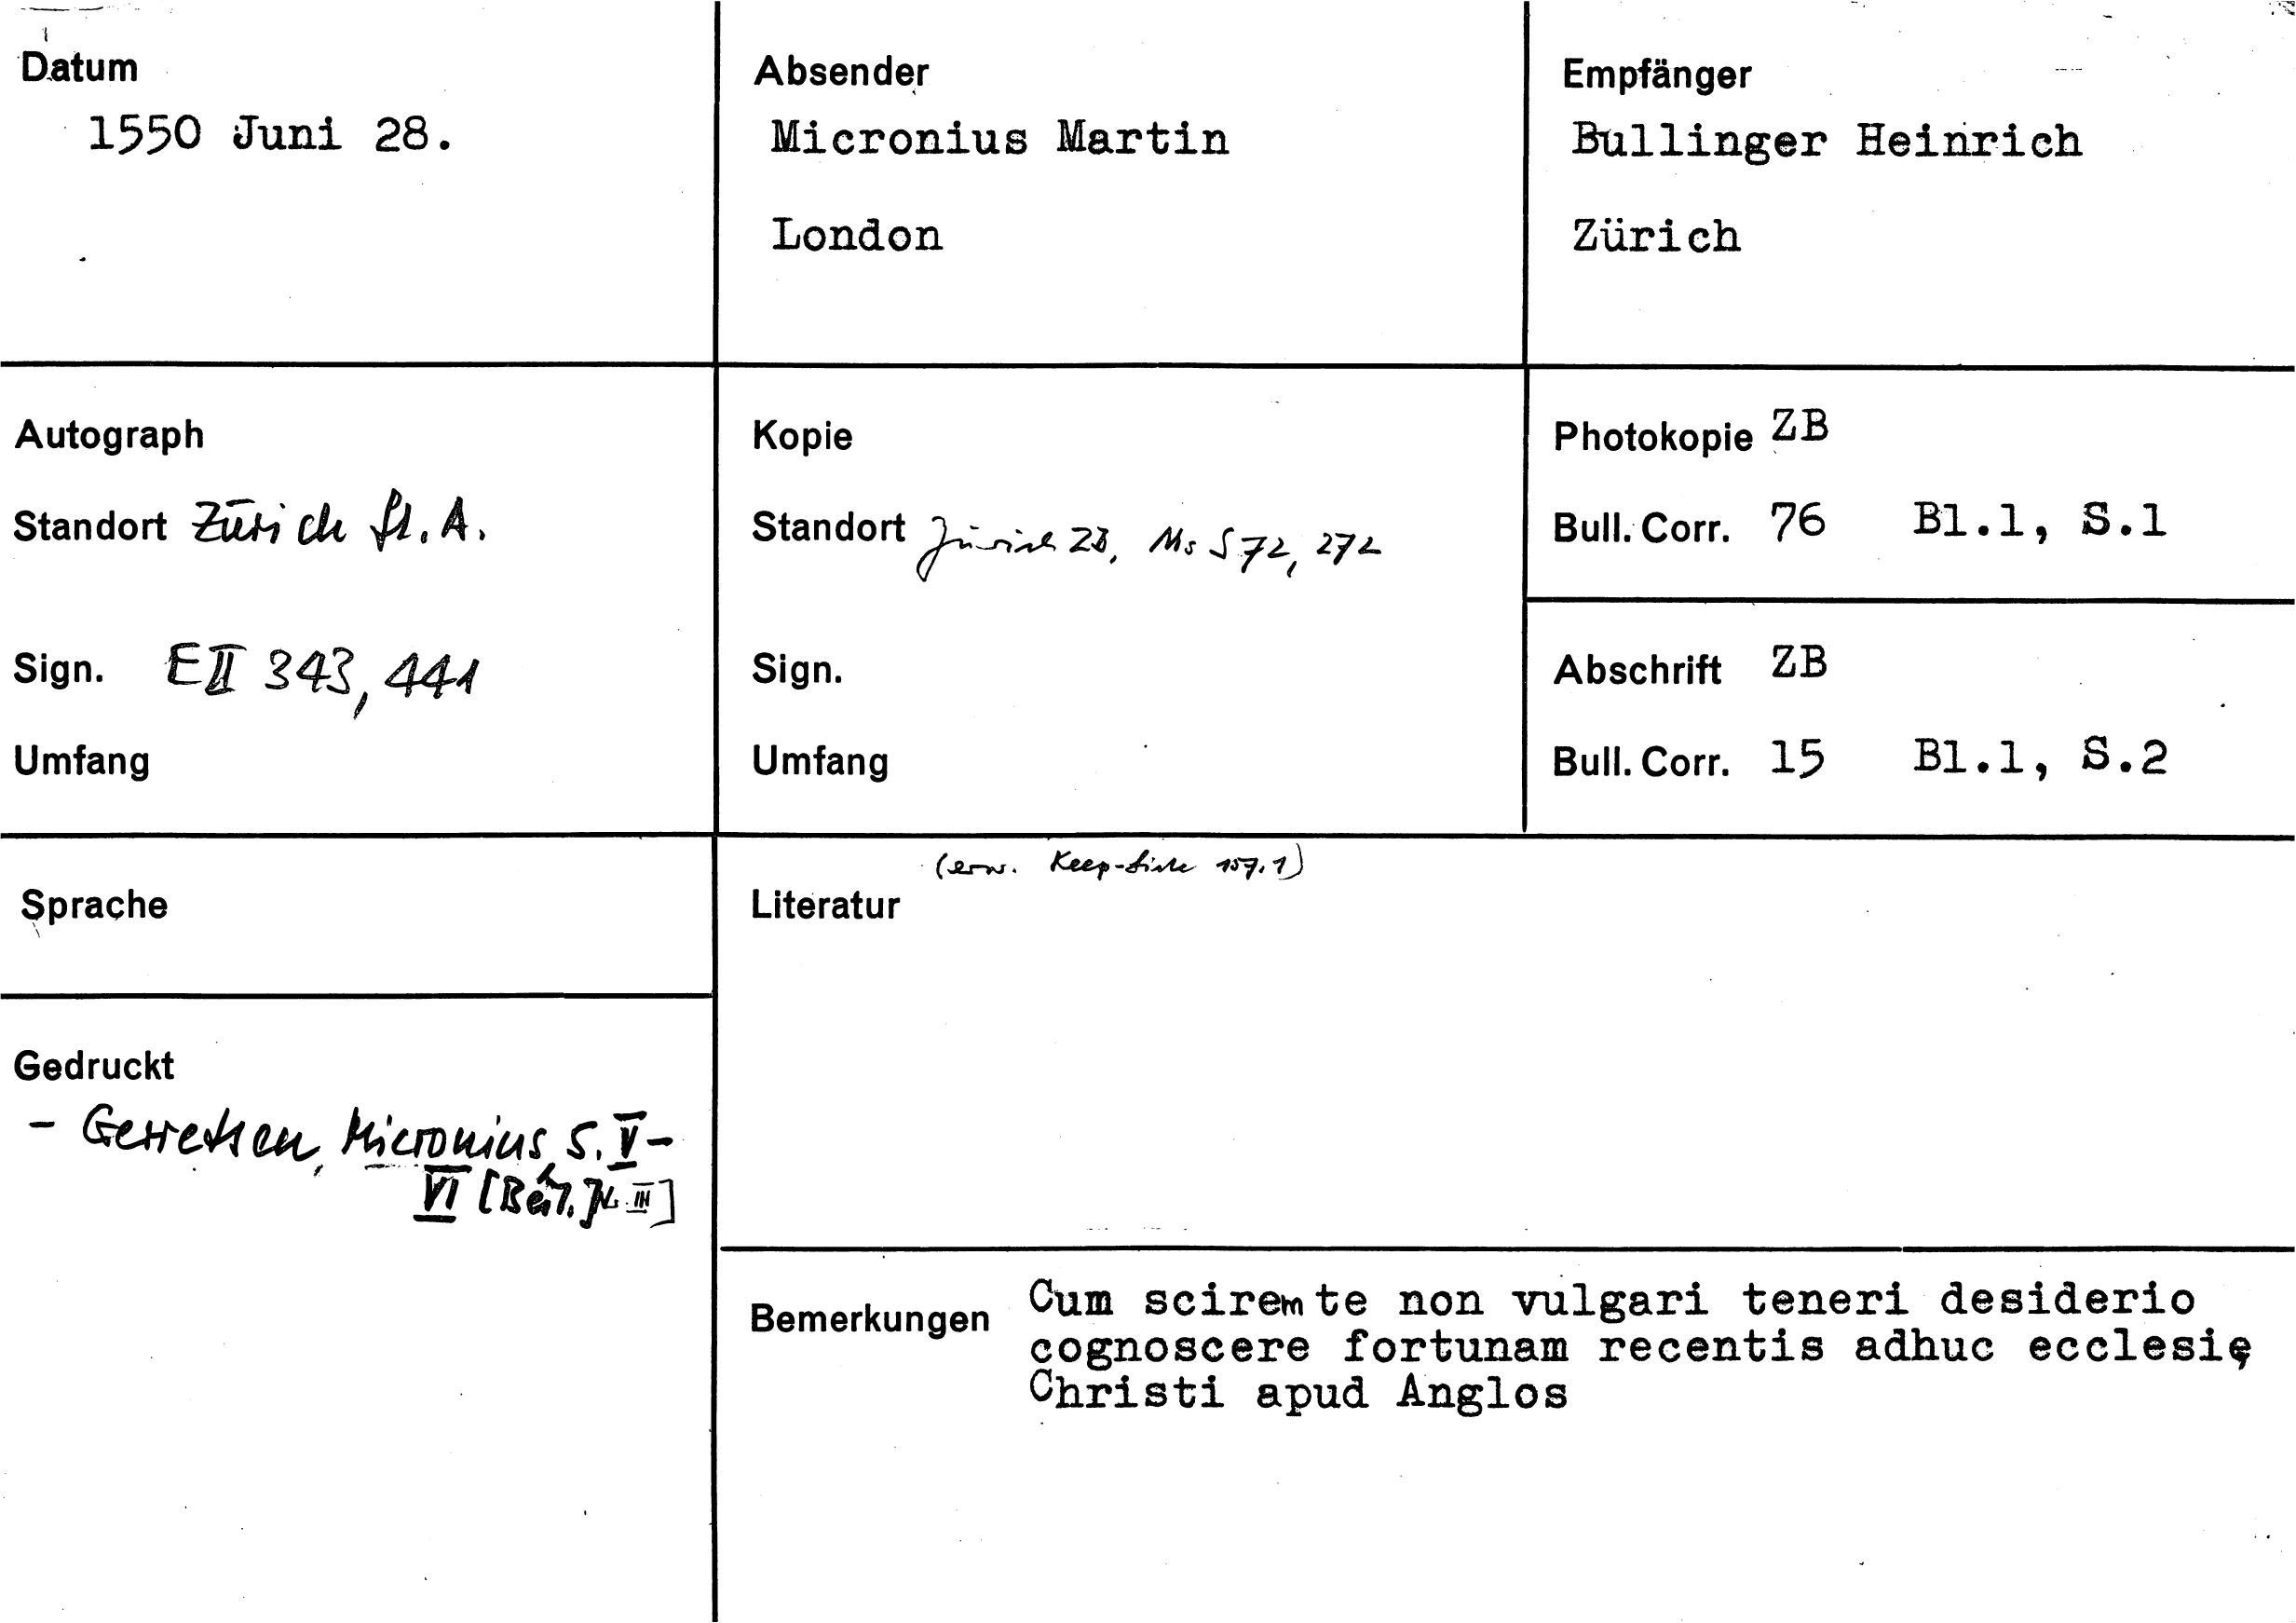 Datum
1550 Juni 28.
Absender
Micronius Martin
London
Empfänger
Bullinger Heinrich
Zürich
Autograph
Standort Zürich St. A.
Sign. E II 343, 441
Umfang
Kopie
Standort Zürich ZB, Ms S 72, 272
Sign.
Umfang
Photokopie ZB
Bull. Corr. 76 Bl.1, S.1
Abschrift ZB
Bull. Corr. 15 Bl.1, S.2
Sprache
Gedruckt
- Gerretsen, Micronius, S. V-
VI [Beil. III]
(erw. Keep-Liste 157.1)
Literatur
Bemerkungen Cum scirem te non vulgari teneri desiderio
cognoscere fortunam recentis adhuc ecclesię
Christi apud Anglos